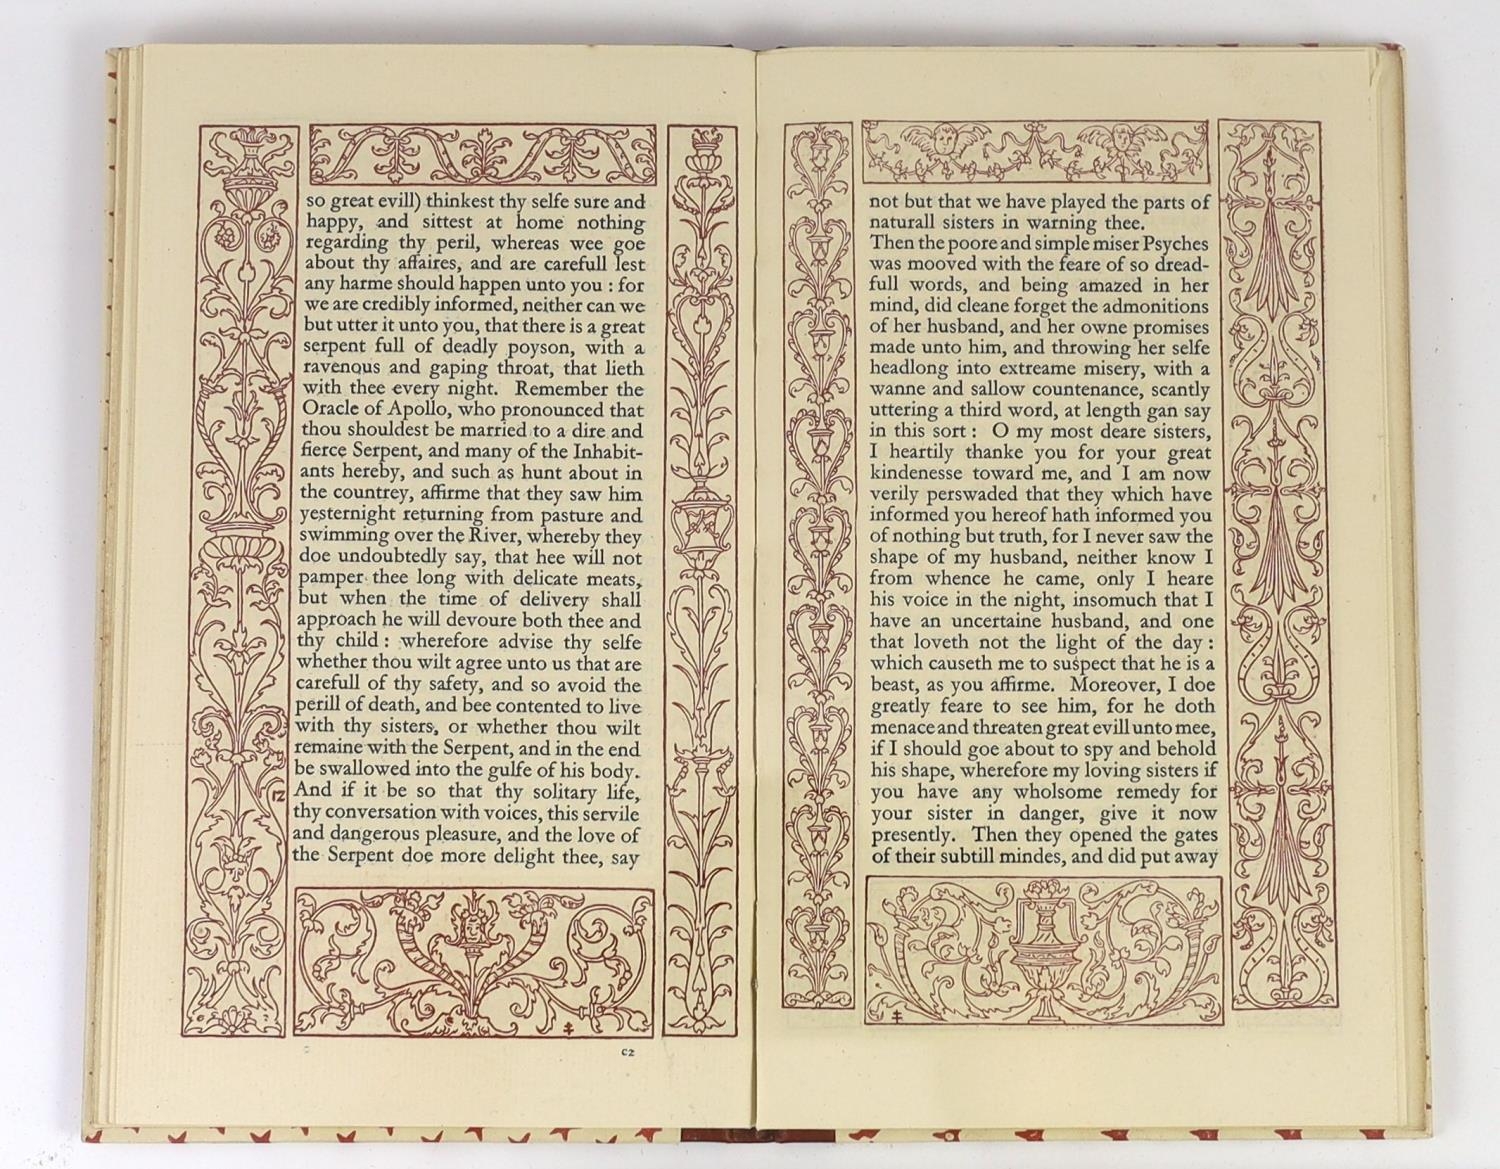 so great evill) thinkest thy selfe sure and
happy, and sittest at home nothing
regarding thy peril, whereas wee goe
about thy affaires, and are carefull lest
any harme should happen unto you : for
we are credibly informed, neither can we
but utter it unto you, that there is a great
serpent full of deadly poyson, with a
ravenous and gaping throat, that lieth
with thee every night. Remember the
Oracle of Apollo, who pronounced that
thou shouldest be married to a dire and
fierce Serpent, and many of the Inhabit-
ants hereby, and such as hunt about in
the countrey, affirme that they saw him
yesternight returning from pasture and
swimming over the River, whereby they
doe undoubtedly say, that hee will not
pamper thee long with delicate meats,
but when the time of delivery shall
approach he will devoure both thee and
thy child : wherefore advise thy selfe
whether thou wilt agree unto us that are
carefull of thy safety, and so avoid the
perill of death, and bee contented to live
with thy sisters, or whether thou wilt
remaine with the Serpent, and in the end
be swallowed into the gulfe of his body.
And if it be so that thy solitary life,
thy conversation with voices, this servile
and dangerous pleasure, and the love of
the Serpent doe more delight thee, say
12
c2
not but that we have played the parts of
naturall sisters in warning thee.
Then the poore and simple miser Psyches
was mooved with the feare of so dread-
full words, and being amazed in her
mind, did cleane forget the admonitions
of her husband, and her owne promises
made unto him, and throwing her selfe
headlong into extreame misery, with a
wanne and sallow countenance, scantly
uttering a third word, at length gan say
in this sort : O my most deare sisters,
I heartily thanke you for your great
kindenesse toward me, and I am now
verily perswaded that they which have
informed you hereof hath informed you
of nothing but truth, for I never saw the
shape of my husband, neither know I
from whence he came, only I heare
his voice in the night, insomuch that I
have an uncertaine husband, and one
that loveth not the light of the day :
which causeth me to suspect that he is a
beast, as you affirme. Moreover, I doe
greatly feare to see him, for he doth
menace and threaten great evill unto mee,
if I should goe about to spy and behold
his shape, wherefore my loving sisters if
you have any wholsome remedy for
your sister in danger, give it now
presently. Then they opened the gates
of their subtill mindes, and did put away